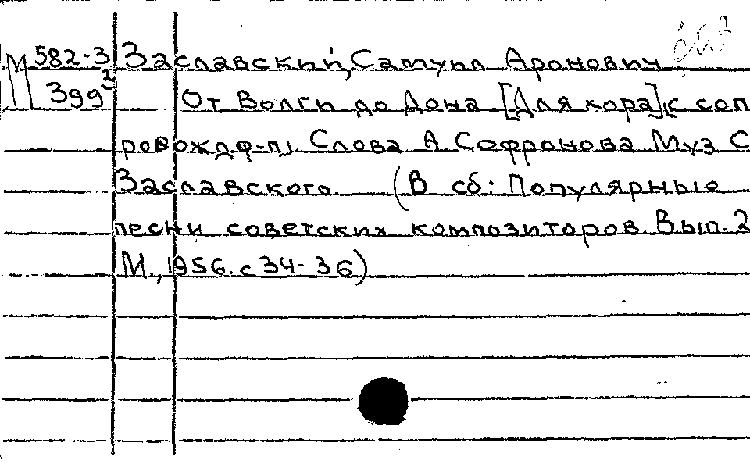 М 582-3 Заславский, Самуил Аронович
399² От Волги до Дона [Для хора] с соп
ровожд. ф-п, Слова А. Софронова Муз С
Заславского. (В сб: Популярные
песни советских композиторов. Вып. 2
М., 1956. с 34-36)